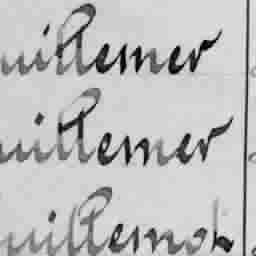 uillemer
uillemer
uillemot